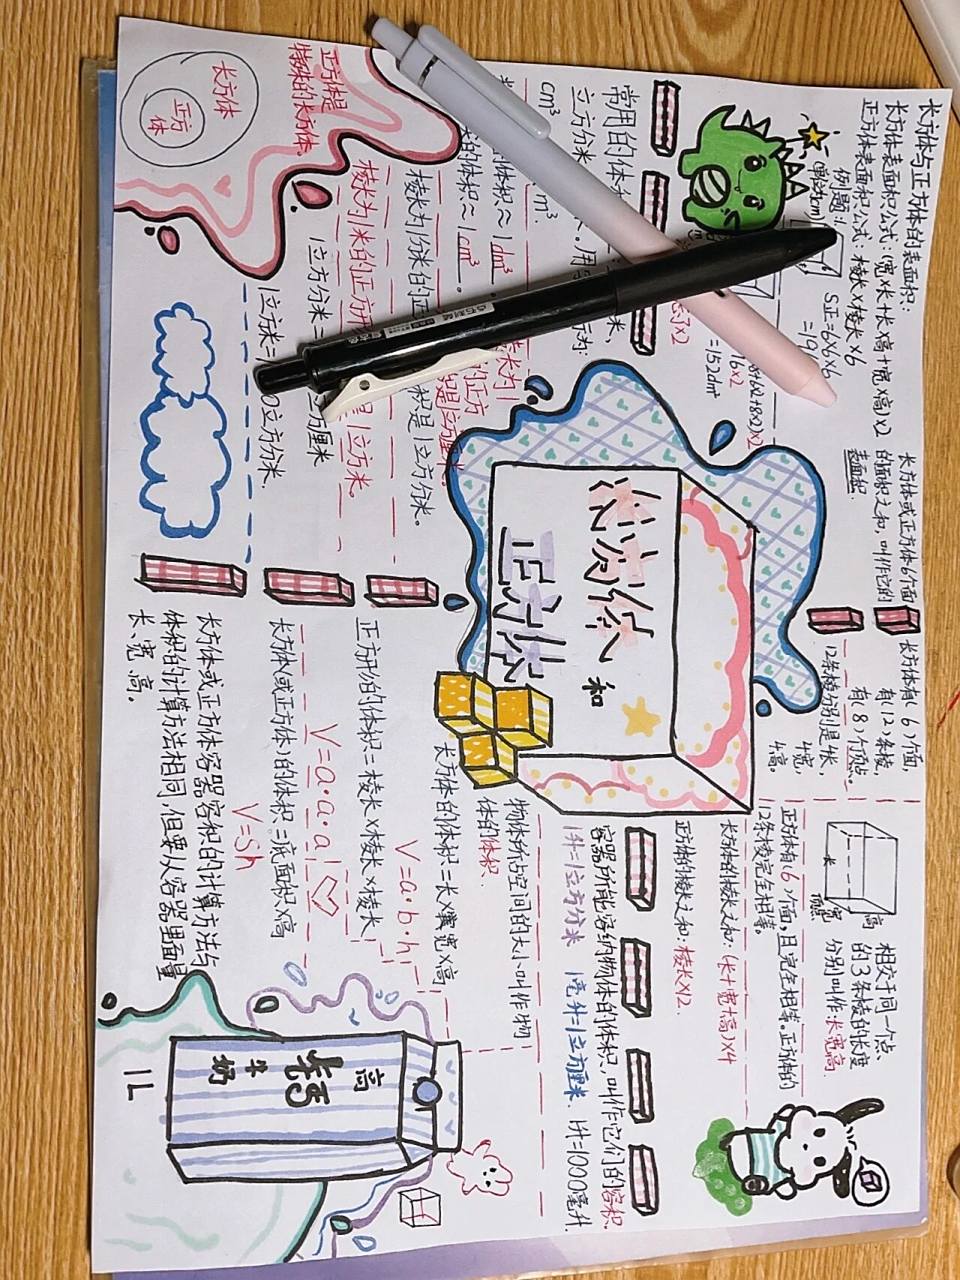 长方体与正方体的表面积:
长方体表面积公式:(宽×长+长×高+宽×高)×2
正方体表面积公式:棱长×棱长×6
例题:
S正=6×6×6
=152dm²
长方体或正方体6个面
的面积之和,叫作它的
表面积
长方体有(6)个面,
有(12)条棱,
有(8)个顶点。
12条棱分别是4长,
4宽,
4高。
长
宽
高
相交于同一个点
的3条棱的长度
分别叫作:长宽高.
正方体有(6)个面,且完全相等。正方体的
12条棱完全相等。
长方体的棱长之和:(长+宽+高)×4
正方体的棱长之和:棱长×12.
长方体
和
正方体
常用的体积
立方分米
cm³
棱长为1分米的正
积是1立方分米。
棱长为1米的正方形
是1立方米。
正方体是
特殊的长方体。
长方体
正方
体
1立方分米=
立方厘米
1立方米=
立方分米.
容器所能容纳物体的体积,叫作它们的容积.
1升=1立方分米 1毫升=1立方厘米. 1升=1000毫升.
物体所占空间的大小叫作物
体的体积.
长方体的体积=长×宽×高
V=a·b·h
正方形的体积=棱长×棱长×棱长
V=a·a·a
长方体或正方体的体积=底面积×高
V=Sh
长方体或正方体容器容积的计算方法与
体积的计算方法相同,但要从容器里面量
长、宽、高。
高
钙
牛
奶
1L